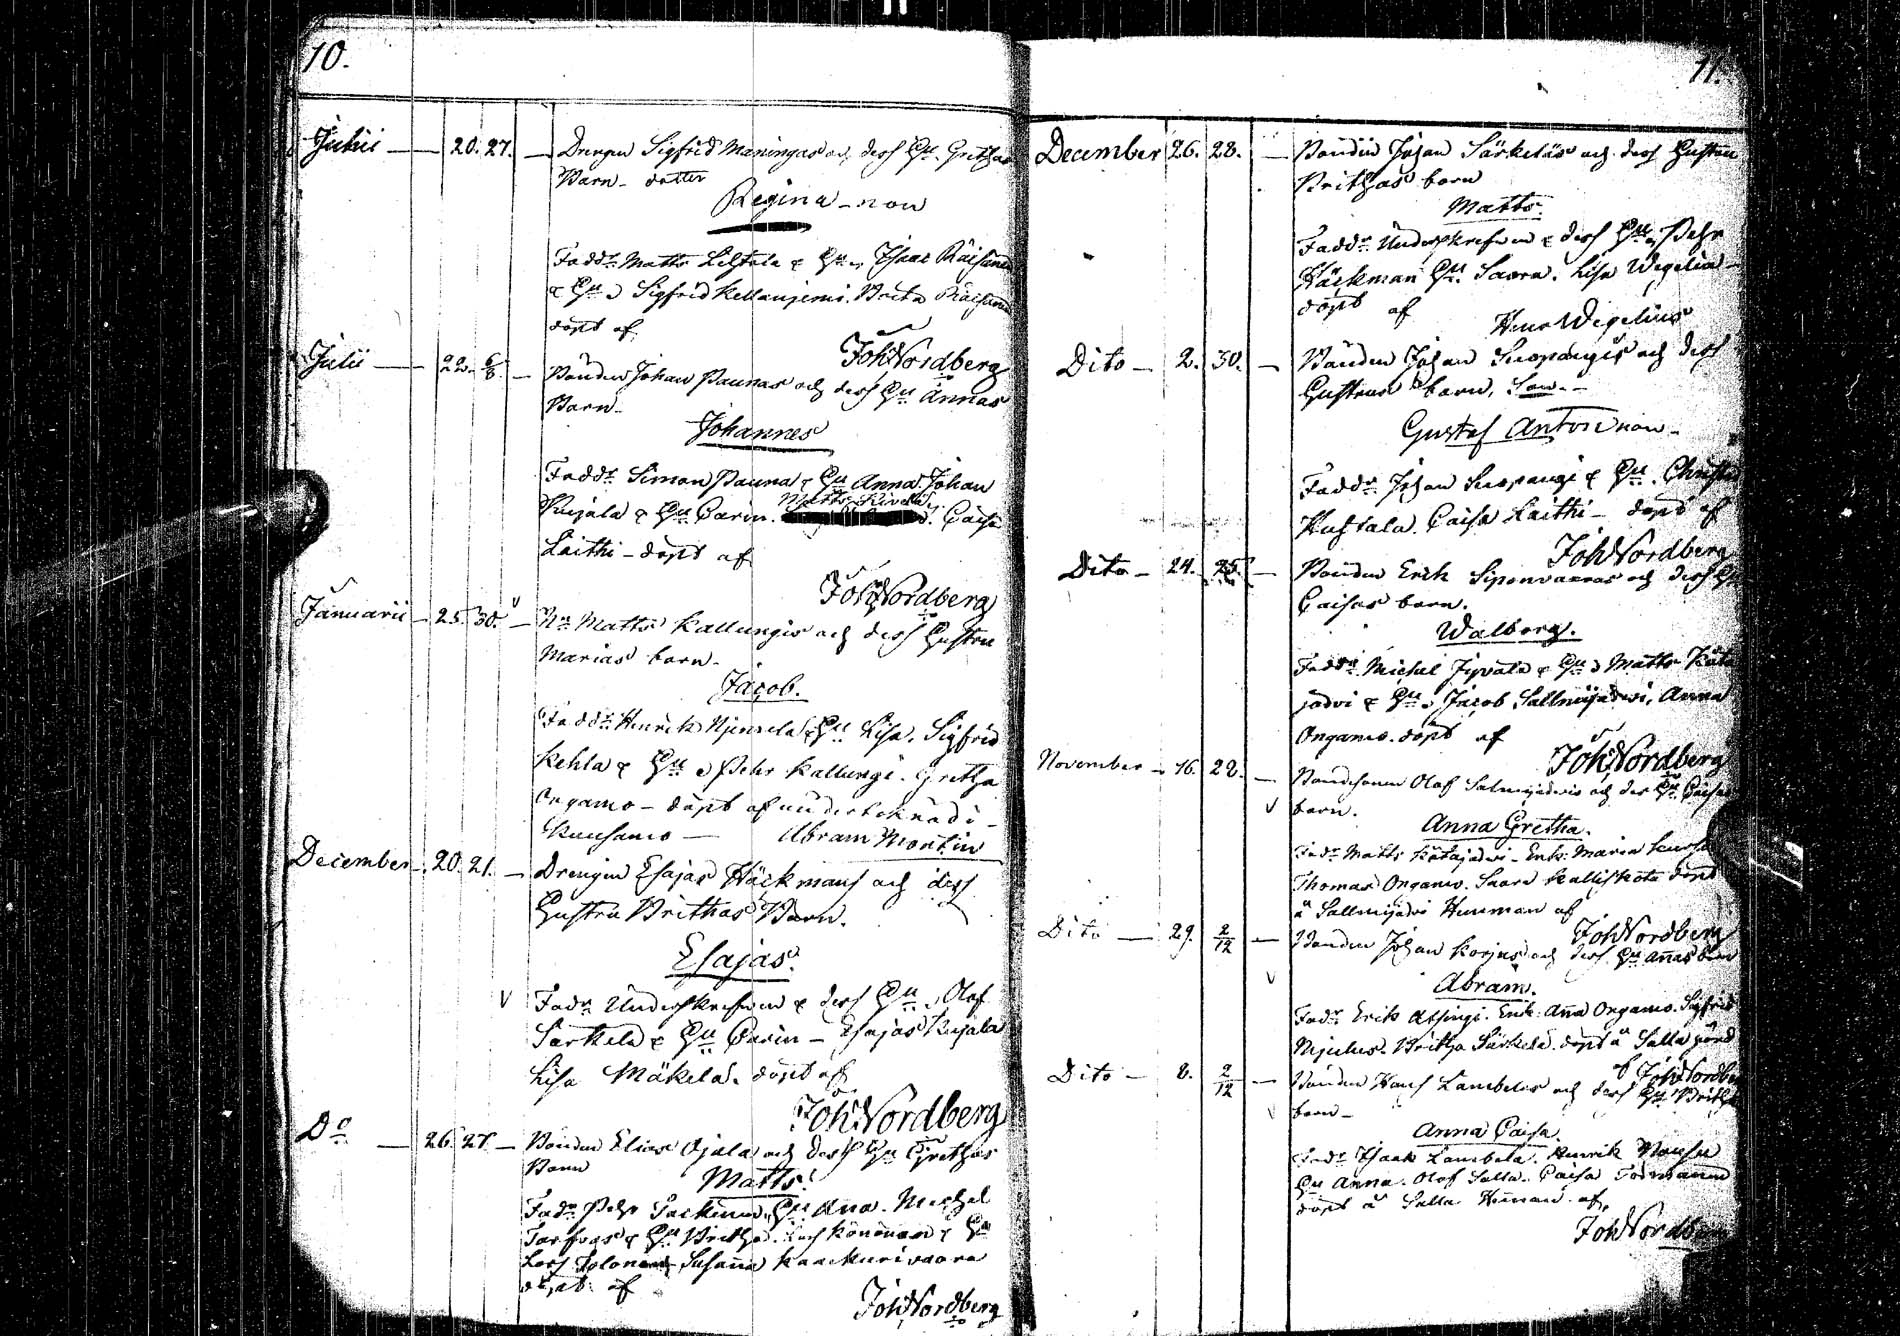 10.
Julii — 20. 27. — Drengen Sigfrid Maningas och dess Hu Grethas
Barn - dotter
Regina - non
Fadd: Matts & Hu, Isaac Räisänen
& Hu, Sigfrid Kellanjemi. Brita Räisänen
döpt af
Joh Nordberg
Julii — 22. 6/8. — Bonden Johan Paunas och dess Hu Annas
Barn -
Johannes
Fadd: Simon Pauna & Hu Anna. Johan
Kujala & Hu Carin. Matts Caisa
Laithi - döpt af
Joh Nordberg
Januarii — 25. 30. — Matts Kallungis och dess Hustru
Marias barn -
Jacob.
Fadd: Henrik & Hu Lisa. Sigfrid
Kehla & Hu, Pehr Kallungi. Gretha
Organo - döpt af undertecknad i
Kuusamo — Abram Montin
December — 20. 21. — Drengen Esajas Häckmans och dess
Hustru Brithas Barn.
Esajas.
Fadr Underskrefwen & dess Hu, Olof
Särkelä & Hu Carin - Esajas Kujala
Lisa Mäkelä. döpt af
Joh Nordberg
Do — 26. 27. — Bonden Elias Ojala och dess Hu Grethas
Barn
Matts.
Fadr Pehr Hu Ana. Michel
& Hu Britha. Lars Könönen & Hu
Lars Susana Kaackurivaara
döpt af
Joh Nordberg
11.
December 26. 28. — Bonden Johan Särkeläs och dess Hustru
Brithas barn
Matts.
Fadd: Underskrefwen & dess Hu, Pehr
Häckman Hu Saara. Lisa Wegelia -
döpt af
Henr Wegelius
Dito — 2. 30. — Bonden Johan Suopangis och dess
Hustrus barn, Son. -
Gustaf Anton non -
Fadd: Johan Suopangi & Hu. Christi
Caisa Laithi - döpt af
Joh Nordberg
Dito — 24. 25. — Bonden Erik Siponvaaras och dess Hu
Caisas barn.
Walborg.
Fadd: Michel Jyvälä & Hu, Matts Käta
järvi & Hu, Jacob Sallmijärwi, Anna
Organo. döpt af
Joh Nordberg
November — 16. 28. — Bondesonen Olof Salmijärwis och des Hu Caisas
barn.
Anna Gretha.
Fadr Matts Kätajärwi - Enk: Maria
Thomas Organo. Saara Kalliskota döpt
å Sallmijärwi Hemman af
Joh Nordberg
Dito — 29. 2/12 — Bonden Johan Korjus och dess Hu Annas barn
Abram.
Fadr Erik Alfingi. Enk: Ana Organo. Sigfrid
Mjulus. Britha Särkelä. döpt å Salla gård
af Joh Nordberg
Dito — 8. 2/12 — Bonden Hans Lambelas och dess Hu Britha
barn -
Anna Caisa.
Fadr Isaak Lambela. Henrik
Hu Anna. Olof Salla. Caisa Tormänen
döpt å Salla Heman af,
Joh Nordberg